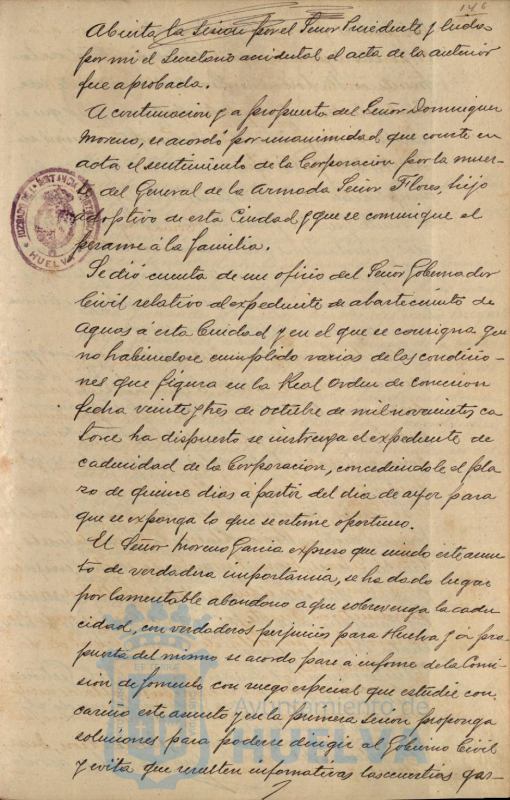 146
Abierta la Sesion por el Señor Presidente y leida
por mi el Secretario accidental el acta de la anterior
fue aprobada.
A continuacion y a propuesta del Señor Dominguez
Moreno, se acordó por unanimidad que conste en
acta el sentimiento de la Corporacion por la muer-
te del General de la Armada Señor Flores, hijo
adoptivo de esta Ciudad y que se comunique el
pesame á la familia.
Se dió cuenta de un oficio del Señor Gobernador
Civil relativo al expediente de abastecimiento de
aguas á esta Ciudad y en el que se consigna que
no habiendose cumplido varias de las condicio-
nes que figura en la Real Orden de concesion
fecha veinte y tres de octubre de mil novecientos ca
torce ha dispuesto se instruya el expediente de
caducidad de la Corporacion, concediendole el pla
zo de quince dias á partir del dia de ayer para
que se exponga lo que se estime oportuno.
El Señor Moreno Garcia expreso que siendo este asun
to de verdadera importancia, se ha dado lugar
por lamentable abandono a que sobrevenga la cadu
cidad, con verdaderos perjuicios para Huelva y á pro
puesta del mismo se acordo pase á informe de la Comi
sion de fomento con ruego especial que estudie con
cariño este asunto y en la primera sesion proponga
soluciones para poderse dirigir al Gobierno Civil
y evita que resulten infornativas las cuantias gas-
JUZGADO DE 1ª INSTANCIA
HUELVA
Ayuntamiento de
HUELVA